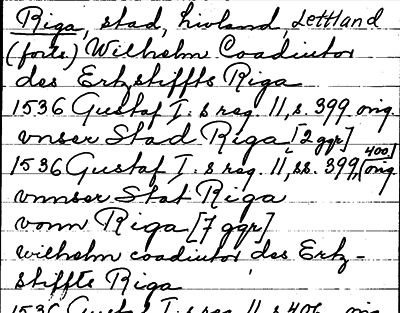 Riga, stad, Livland, Lettland
(forts.) Wilhelm Coadiutor
des Ertzstiffts Riga
1536 Gustaf I:s reg. 11, s. 399 orig.
vnser Stad Riga [2 ggr]
1536 Gustaf I:s reg. 11, ss. 399, [orig
400]
vnnser Stat Riga
vonn Riga [7 ggr]
wilhelm coadiutor des Ertz-
stiffts Riga
1536 Gustaf I:s reg. 11 s 406 orig